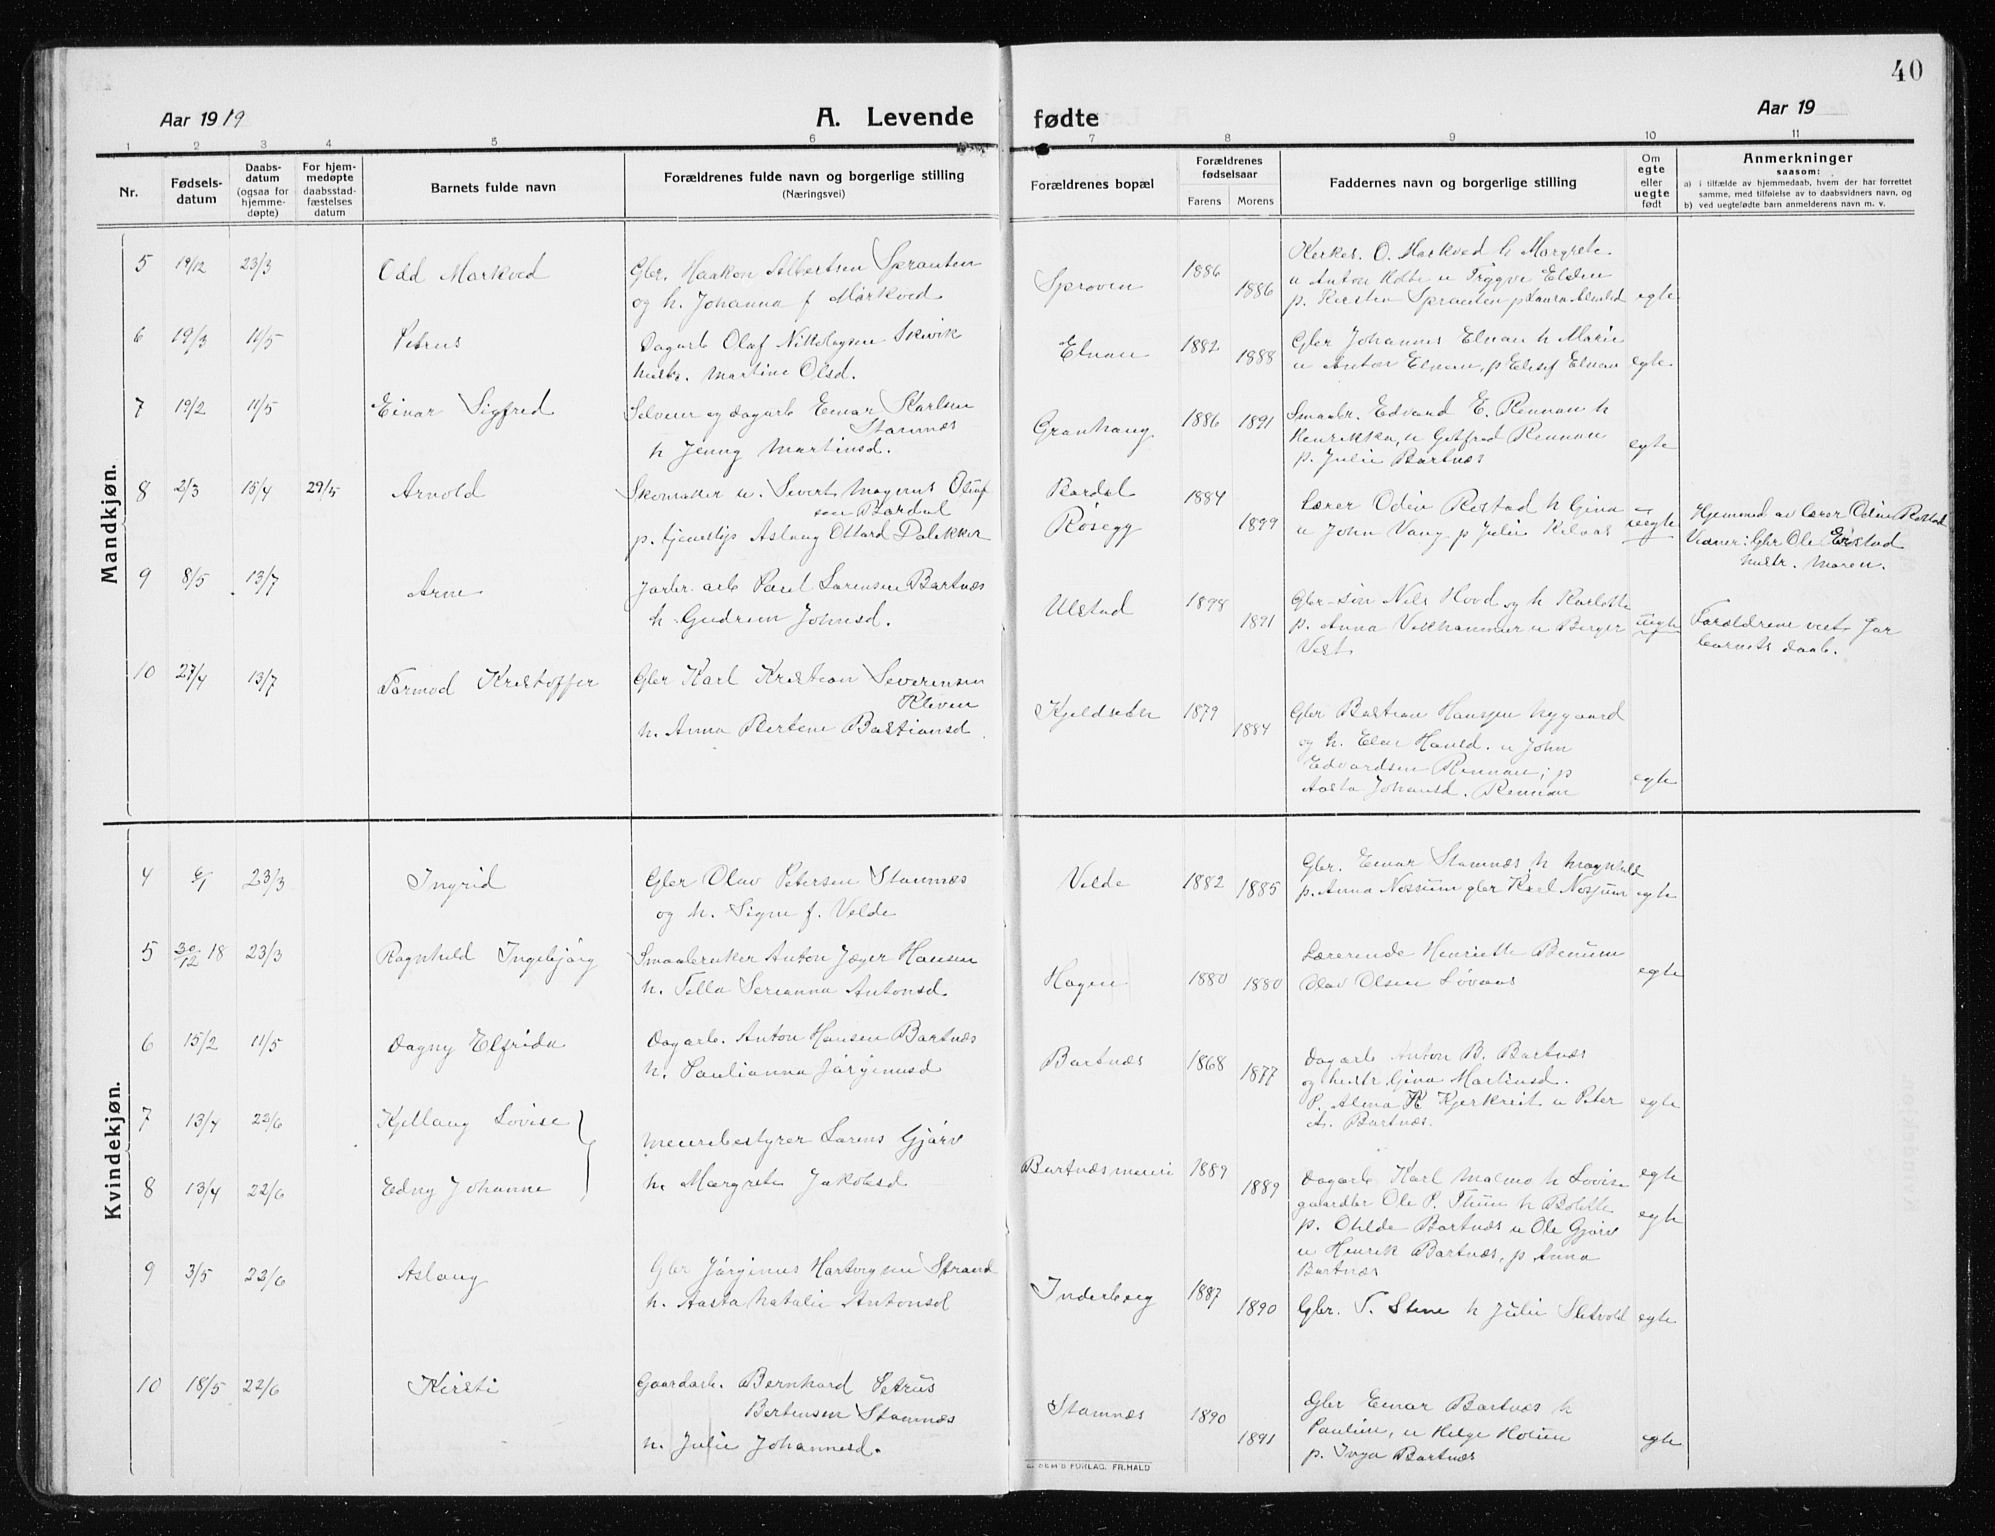 40
Aar 1919
A. Levende fødte
Aar 19
1 2 3 4 5 6 7 8 9 10 11
Nr.
Fødsels-
datum
Daabs-
datum
(ogsaa for
hjemme-
døpte)
For hjem-
medøpte
daabsstad-
fæstelses
datum
Barnets fulde navn
Forældrenes fulde navn og borgerlige stilling
(Næringsvei)
Forældrenes bopæl
Forældrenes
fødselsaar
Farens Morens
Faddernes navn og borgerlige stilling
Om
egte
eller
uegte
født
Anmerkninger
saasom:
a) i tilfælde av hjemmedaab, hvem der har forrettet
samme, med tilføielse av to daabsvidners navn, og
b) ved uegtefødte barn anmelderens navn m. v.
Mandkjøn.
5 19/12 23/3 Odd Markved
Gbr. Haakon Albertsen Sprauten
og h. Johanna f Markved
Sproven 1886 1886
Kirkes. O. Markved h Margrete
u Anton u Trygve Elden
p. Kirsten Sprauten p Laura
egte
6 19/3 11/5 Petrus
Dagarb Olaf Skivik
hustr. Martine Olsd.
Elnan 1882 1888
Gbr Johannes Elnan h Marie
u Anton Elnan, p Elisef Elnan egte
7 19/2 11/5 Einar Sigfred
Selveier og dagarb Einar Karlsen
Stamnes
h Jenny Martinsd.
Granhaug 1886 1891
Smaabr. Edvard E. Rennan h
Henrikka, u Gotfred Rennan
p. Julie Bartnæs
egte
8 2/3 15/4 29/5 Arnold
Skomaker u. Sivert Magnus Oluf
sen Bardal
p. tjenestep Aslaug Ottard Dalekker
Bardal
Røsegg
1884 1899
Lærer Odin Rostad h Gina
u John Vang p Julie
uegte
Hjemmed av lærer Odin Rostad
Vidner: Gbr Ole
hustr. Maren.
9 8/5 13/7 Arne
arb Paul Lorensen Bartnæs
h. Gudrun Johnsd.
Ulstad 1898 1891
Gbr-søn Nils Hovd og h Karlotte
p. Anna Vikhammer u Birger
Vist
uegte
Forældrene viet før
barnets daab.
10 27/4 13/7 Tormod Kristoffer
Gbr Karl Kristian Severinsen
Kleven
h. Anna Bertine Bastiansd.
Kjeldsetr 1879 1884
Gbr Bastian Hansen Nygaard
og h. Elen Hansd. u John
Edvardsen Rennan; p
Aasta Johansd. Rennan
egte
Kvindekjøn.
4 6/1 23/3 Ingrid
Gbr Olav Petersen Stamnæs
og h. Signe f. Velde
Velde 1882 1885
Gbr. Einar Stamnæs h Magnhild
p. Anna Nossum gbr Karl Nossum egte
5 30/12 18 23/3 Ragnhild Ingebjørg
Smaabruker Anton Jæger Hansen
h. Tella Serianna Antonsd
Hagen 1880 1880
Lærerinde Henriette Benum
Olav Olsen Løvaas
egte
6 15/2 11/5 Dagny Elfrida
Dagarb. Anton Hansen Bartnæs
h. Paulianna Jørginusd
Bartnæs 1868 1877
Dagarb Anton B. Bartnæs
og hustr Gina Martinusd.
P. Alma K Kjerkreit u Peter
A. Bartnæs.
egte
7 13/4 22/6 Kjellaug Lovise
8 13/4 22/6 Edny Johanne
Meieribestyrer Lorens Gjørv
h. Margrete Jakobsd
Bartnæs meieri 1889 1889
Dagarb Karl Malmo h Lovise
gaardbr Ole P. Thun h Bolette
p. Olilde Bartnæs u Ole Gjørv
u Henrik Bartnæs, p Anna
Bartnæs
egte
egte
9 3/5 22/6 Aslaug
Gbr Jørginus Hartvigsen Strand
h. Aasta Natalie Antonsd
Inderberg 1887 1890
Gbr. T. Stene h Julie Sletvold egte
10 18/5 22/6 Kirsti
Gaardarb. Bernhard Petrus
Bertinsen Stamnæs
h. Julie Johannesd.
Stamnæs 1890 1891
Gbr Einar Bartnæs h
Pauline, u Helge Holum
p. Inga Bartnæs
egte
FORLAG. FR.HALD